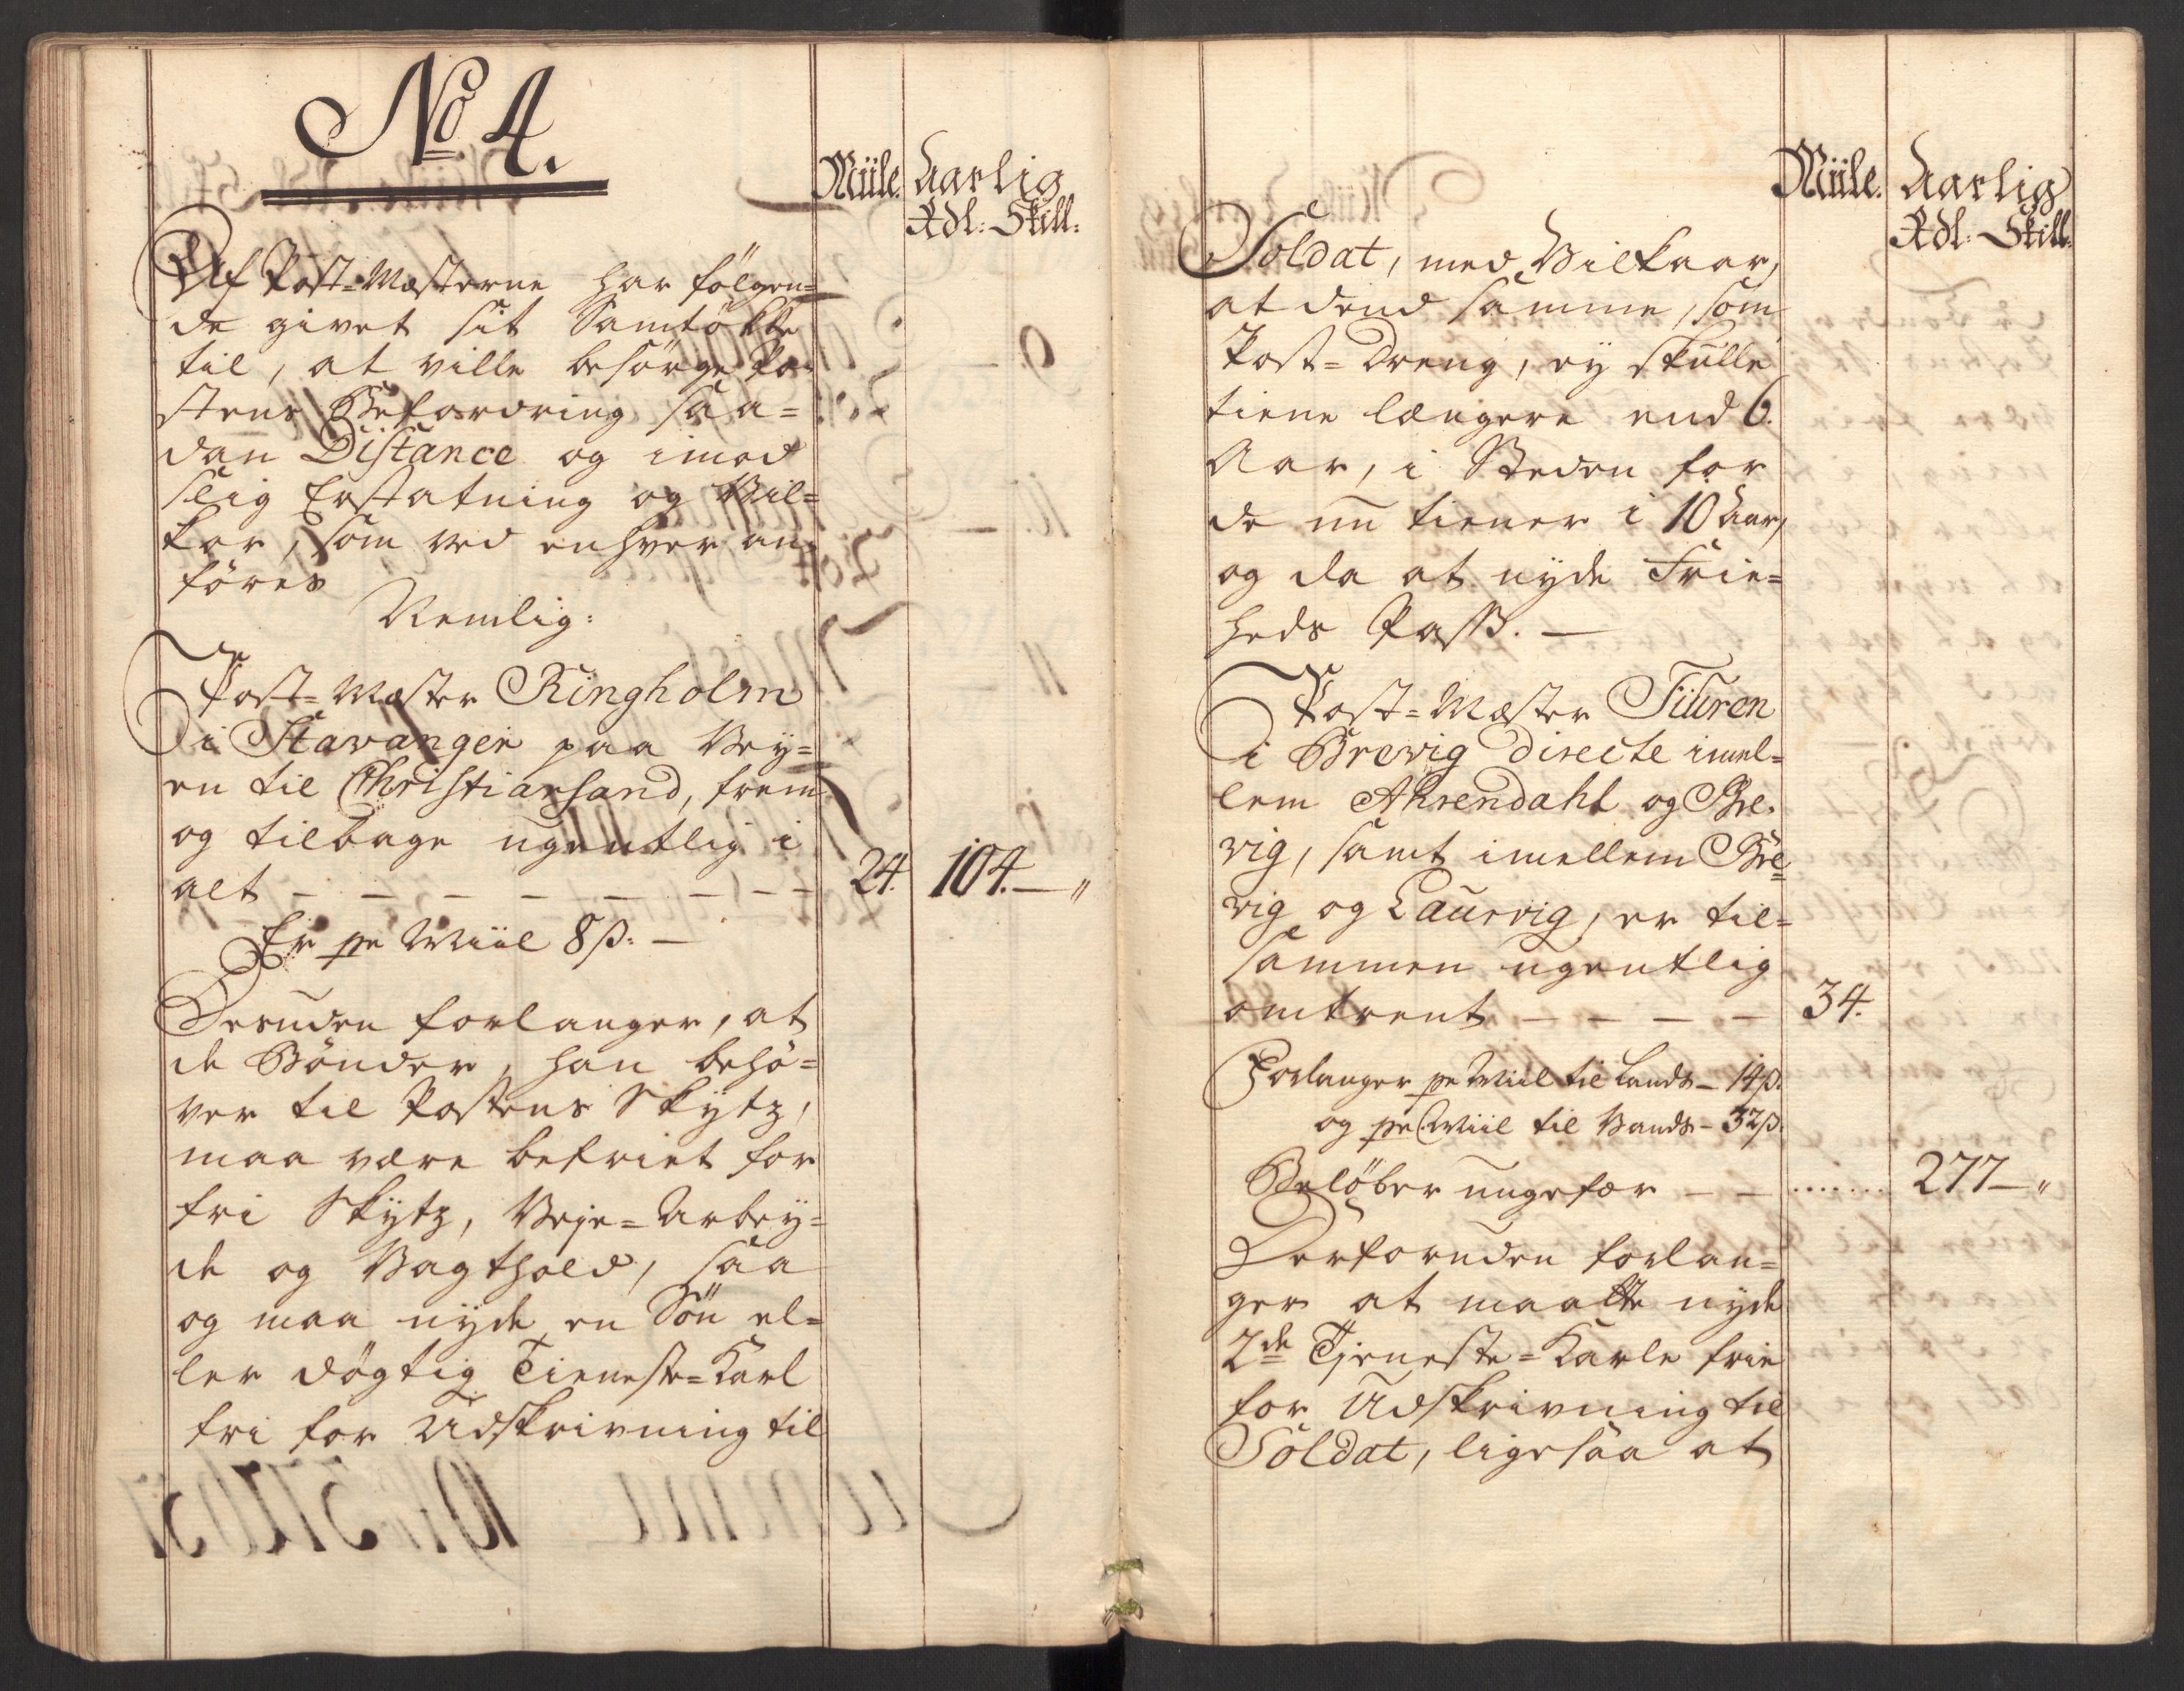 No 4.
Miile. Aarlig
Rdl: Skill:
Af Post-Mæsterne har følgen=
de givet sit Samtøkke
til, at ville besørge Po=
stens Befordring saa=
dan Distance og imod
slig Erstatning og Vil=
kor, som ved enhver an=
føres
Nemlig:
Post-Mæster Ringholm
i Stavanger paa Vey=
en til Christiansand, frem
og tilbage ugentlig i
alt - - - - - - - - 24. 104. — "
Er pr Miil 8 ß. —
Desuden forlanger, at
de Bønder, han behø=
ver til Postens Skytz,
maa være befriet for
fri Skytz, Veje=Arbey=
de og Vagthold, saa
og maa nyde en Søn el=
ler døgtig Tieneste=Karl
fri for Udskrivning til
Miile. Aarlig
Rdl: Skill:
Soldat, med Vilkaar,
at dend samme, som
Post=Dreng, ey skulle
tiene længere end 6.
Aar, i Steden for
de nu tiener i 10 Aar,
og da at nyde Frie=
heds Pass. —
Post=Mæster Fiuren
i Brevig directe imel=
lem Ahrendahl og Bre=
vig, samt imellem Bre=
vig og Laurvig, er til=
sammen ugentlig
omtrent — — — — 34.
Forlanger pr Miil til Lands — 14 ß.
og pr Miil til Vands — 32 ß.
Beløber ungefær — — ....... 277 — "
Derforuden forlan=
ger at maatte nyde
2de Tjeneste=Karle frie
for Udskrivning til
Soldat, ligesaa at